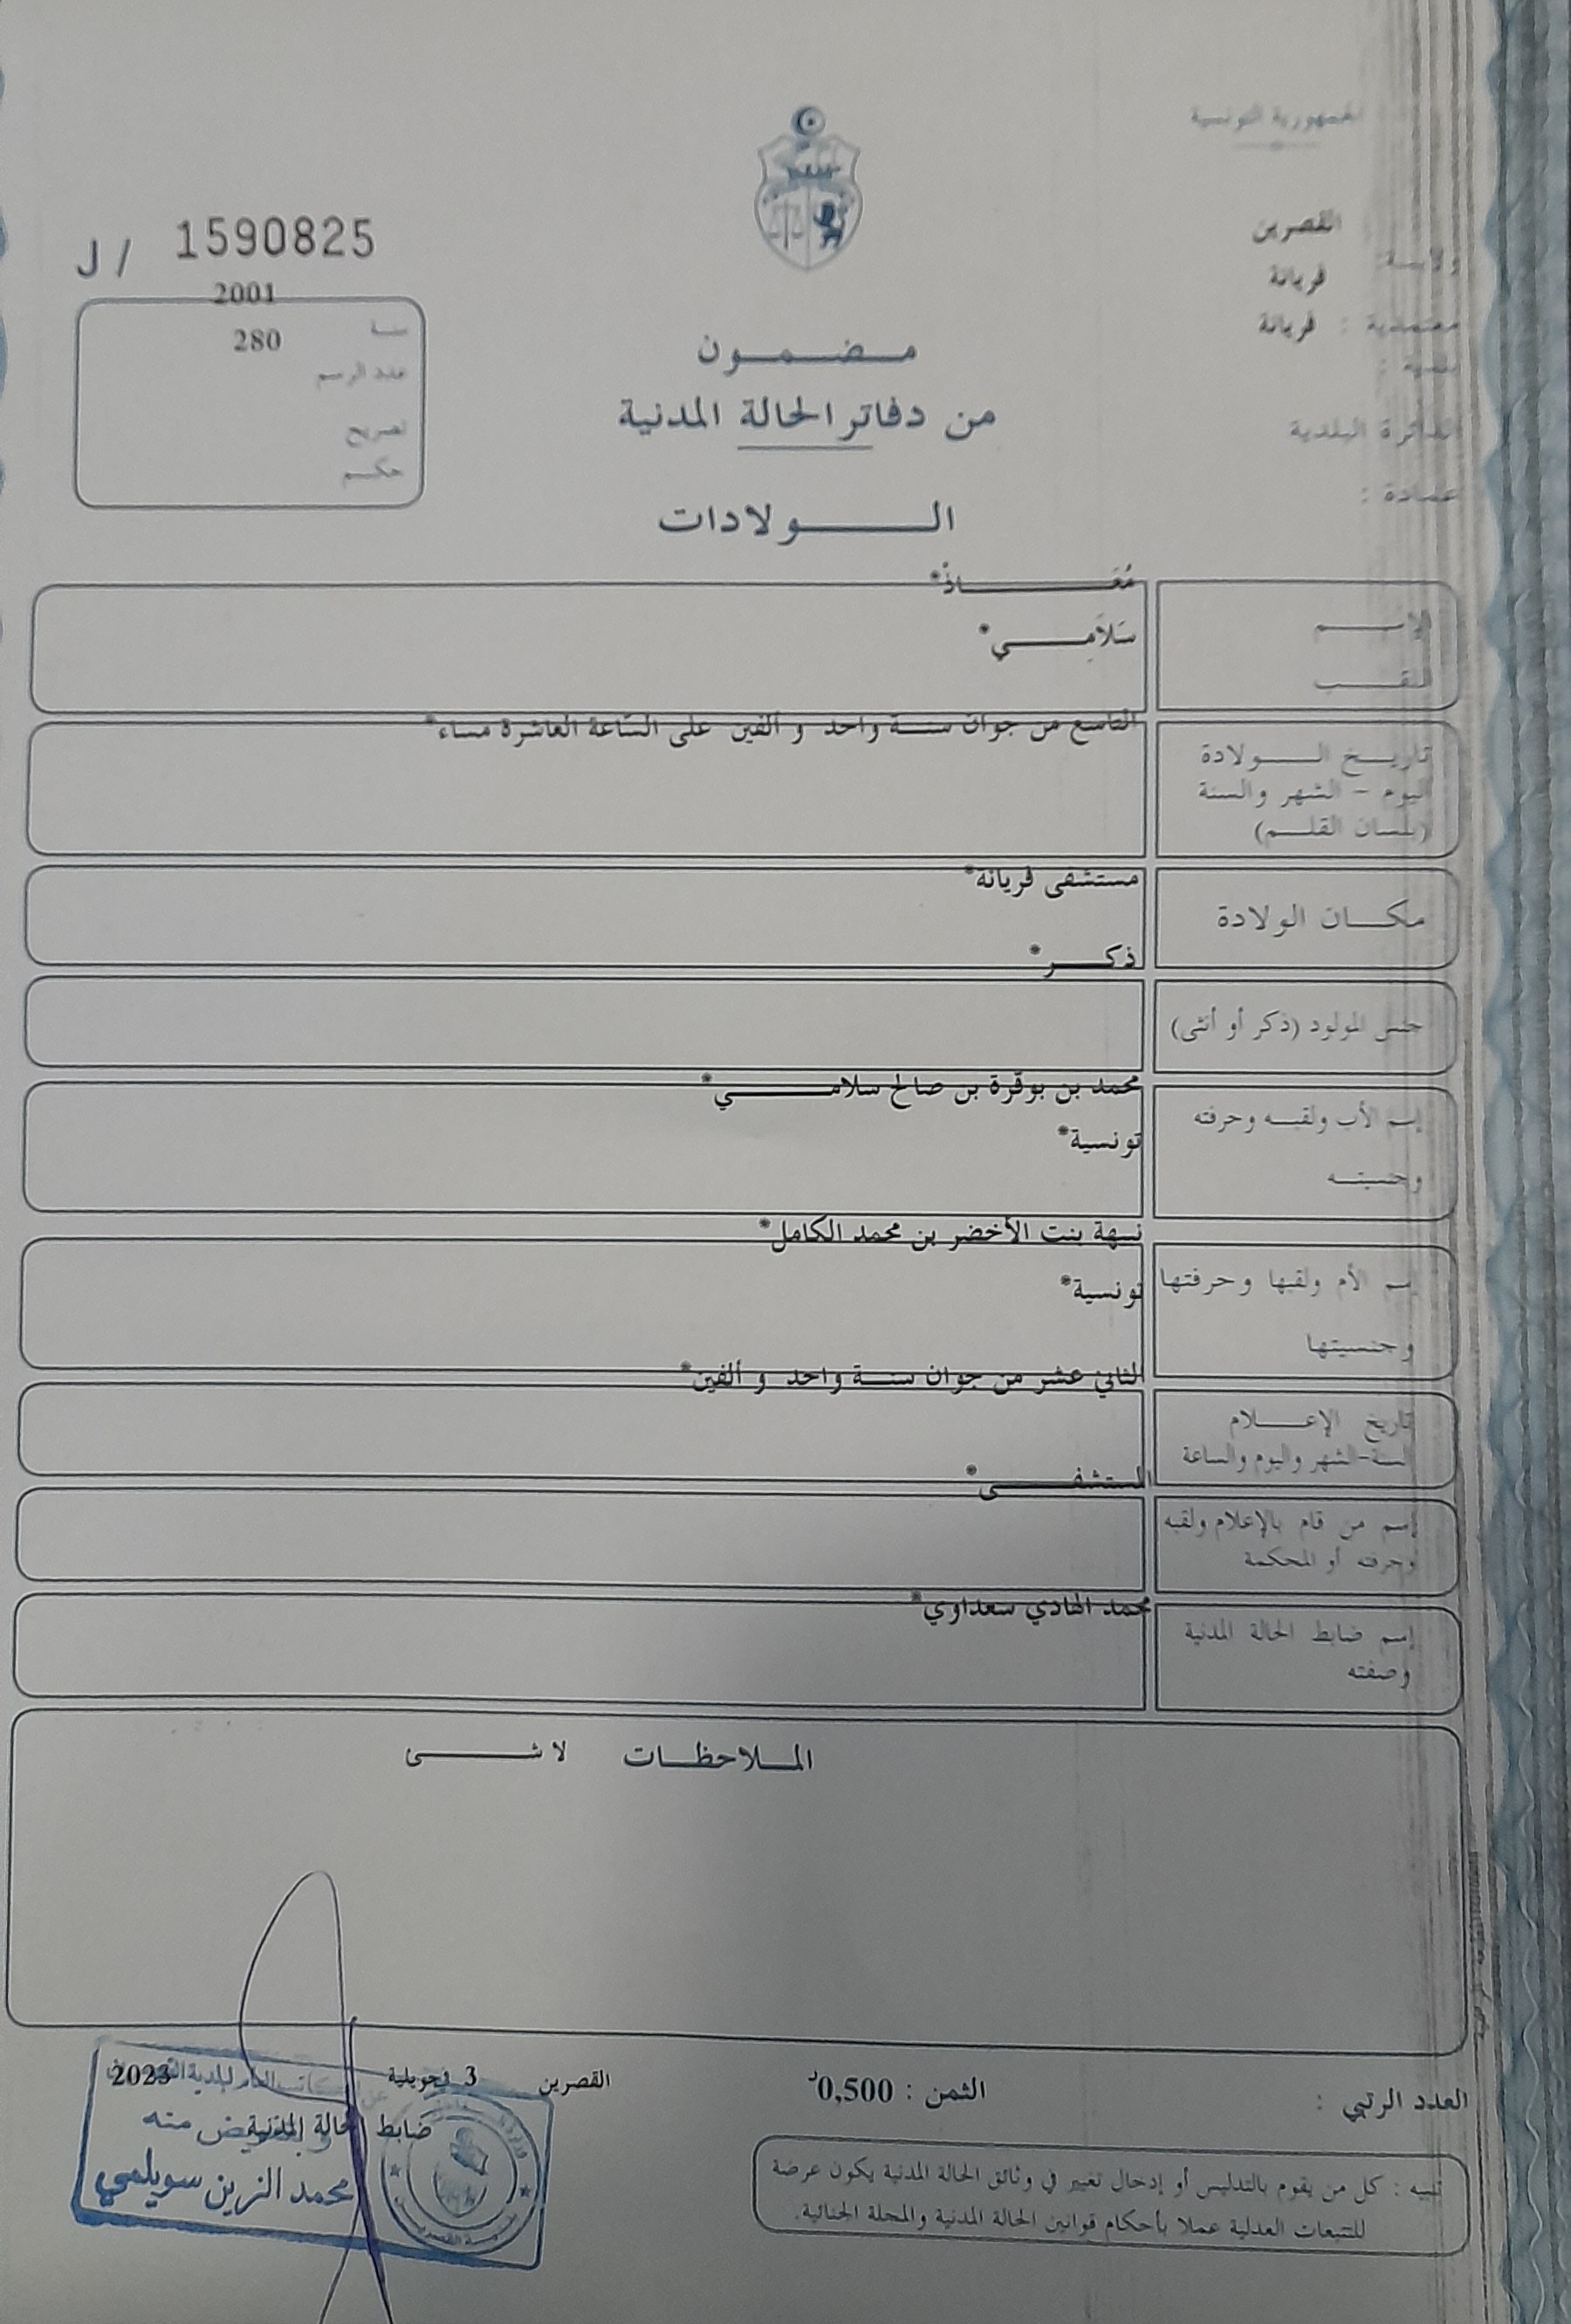 الجمهورية التونسية
ولاية: القصرين
معتمدية : فريانة
بلدية : فريانة
الدائرة البلدية
عمادة :
J / 1590825
سنة 2001
عدد الرسم 280
تصريح
حكم
مضمون
من دفاتر الحالة المدنية
الولادات
الإسم
مُعَاذْ*
اللقب
سَلاَمِي*
تاريخ الولادة
اليوم - الشهر والسنة
(بلسان القلم)
التاسع من جوان سنة واحد و ألفين على السّاعة العاشرة مساء*
مكان الولادة
مستشفى فريانة*
جنس المولود (ذكر أو أنثى)
ذكر*
إسم الأب ولقبه وحرفته
وجنسيته
محمد بن بوقرة بن صالح سلامي*
تونسية*
إسم الأم ولقبها وحرفتها
وجنسيتها
نسهة بنت الأخضر بن محمد الكامل*
تونسية*
تاريخ الإعلام
السنة-الشهر واليوم والساعة
الثاني عشر من جوان سنة واحد و ألفين*
إسم من قام بالإعلام ولقبه
وحرفته أو المحكمة
المستشفى*
إسم ضابط الحالة المدنية
وصفته
محمد الهادي سعداوي*
الملاحظات لا شى
العدد الرتبي :
الثمن : 0,500د
القصرين 3 جويلية 2023
ضابط الحالة المدنية
وبتفويض منه
محمد الزين سويلمي
تنبيه : كل من يقوم بالتدليس أو إدخال تغيير في وثائق الحالة المدنية يكون عرضة
للتتبعات العدلية عملا بأحكام قوانين الحالة المدنية والمجلة الجنائية.